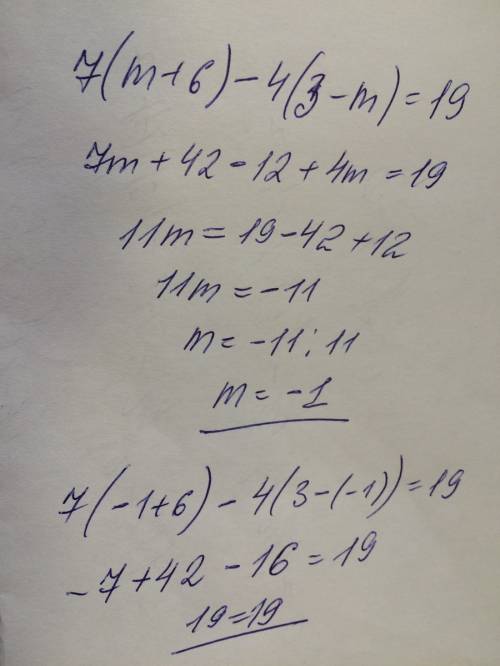 7(m+6)-4(3-m)=19
7m+42-12+4m=19
11m=19-42+12
11m=-11
m=-11:11
m=-1
7(-1+6)-4(3-(-1))=19
-7+42-16=19
19=19